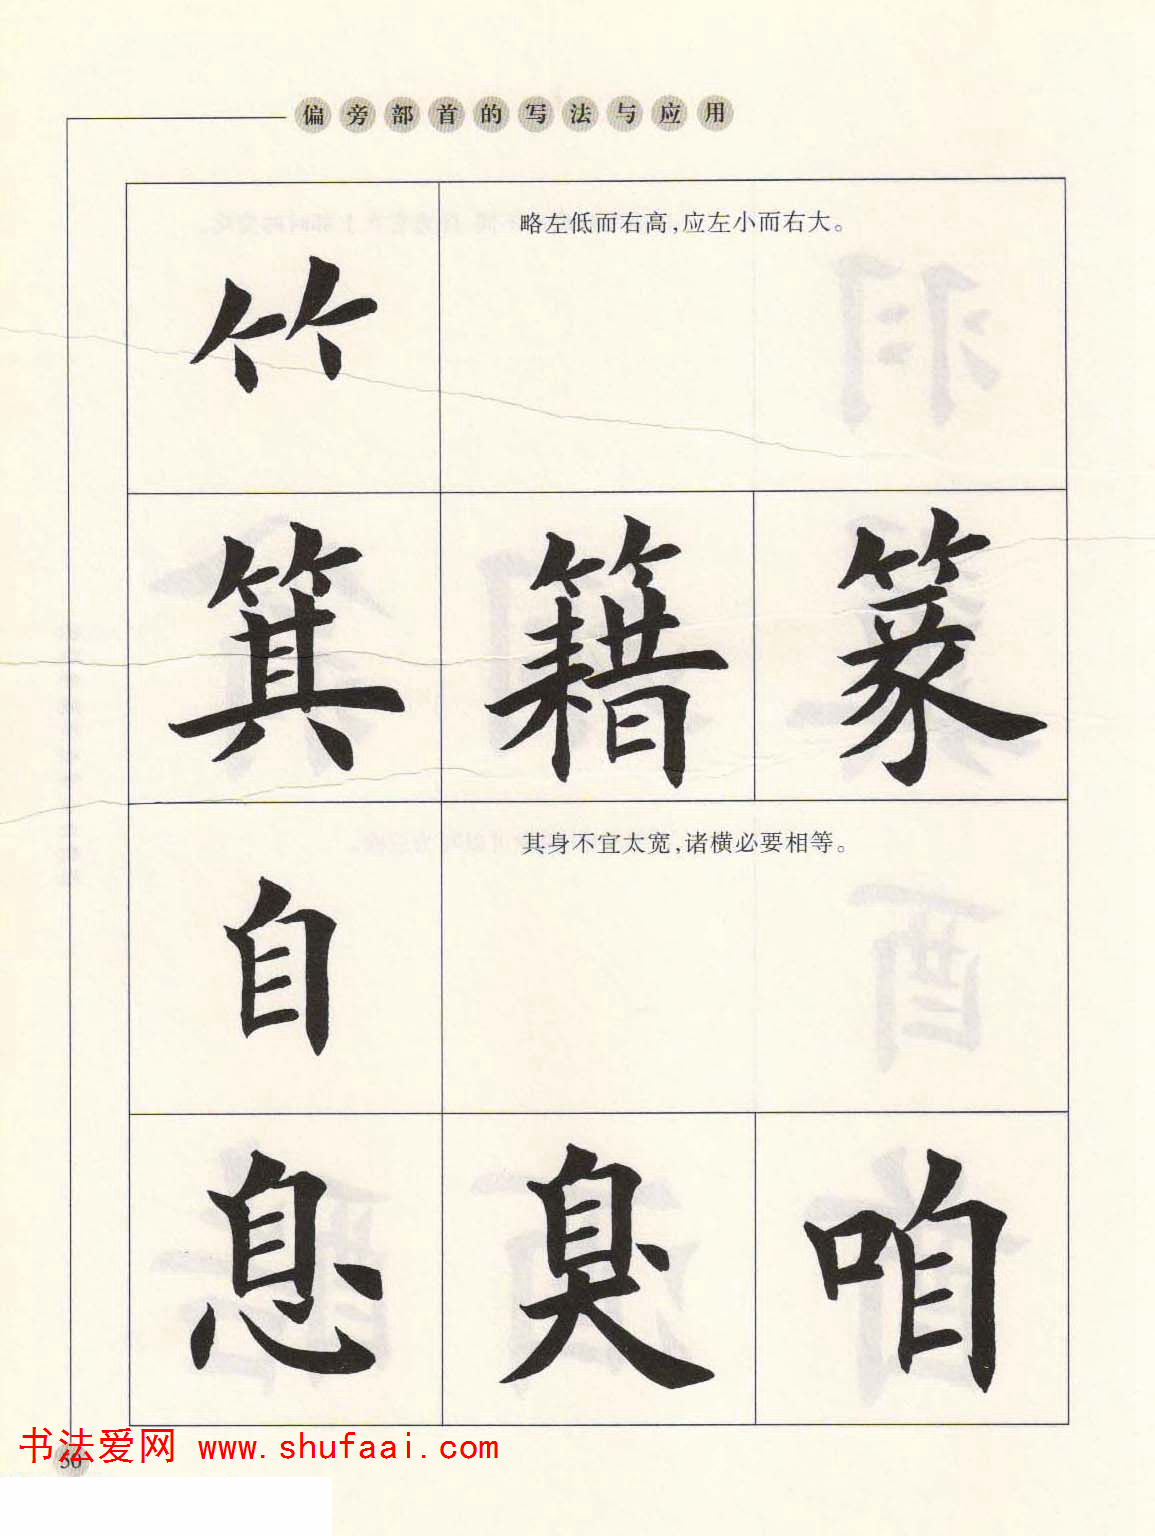 偏旁部首的写法与应用
竹
略左低而右高，应左小而右大。
箕 籍 篆
自
其身不宜太宽，诸横必要相等。
息 臭 咱
书法爱网 www.shufaai.com
56